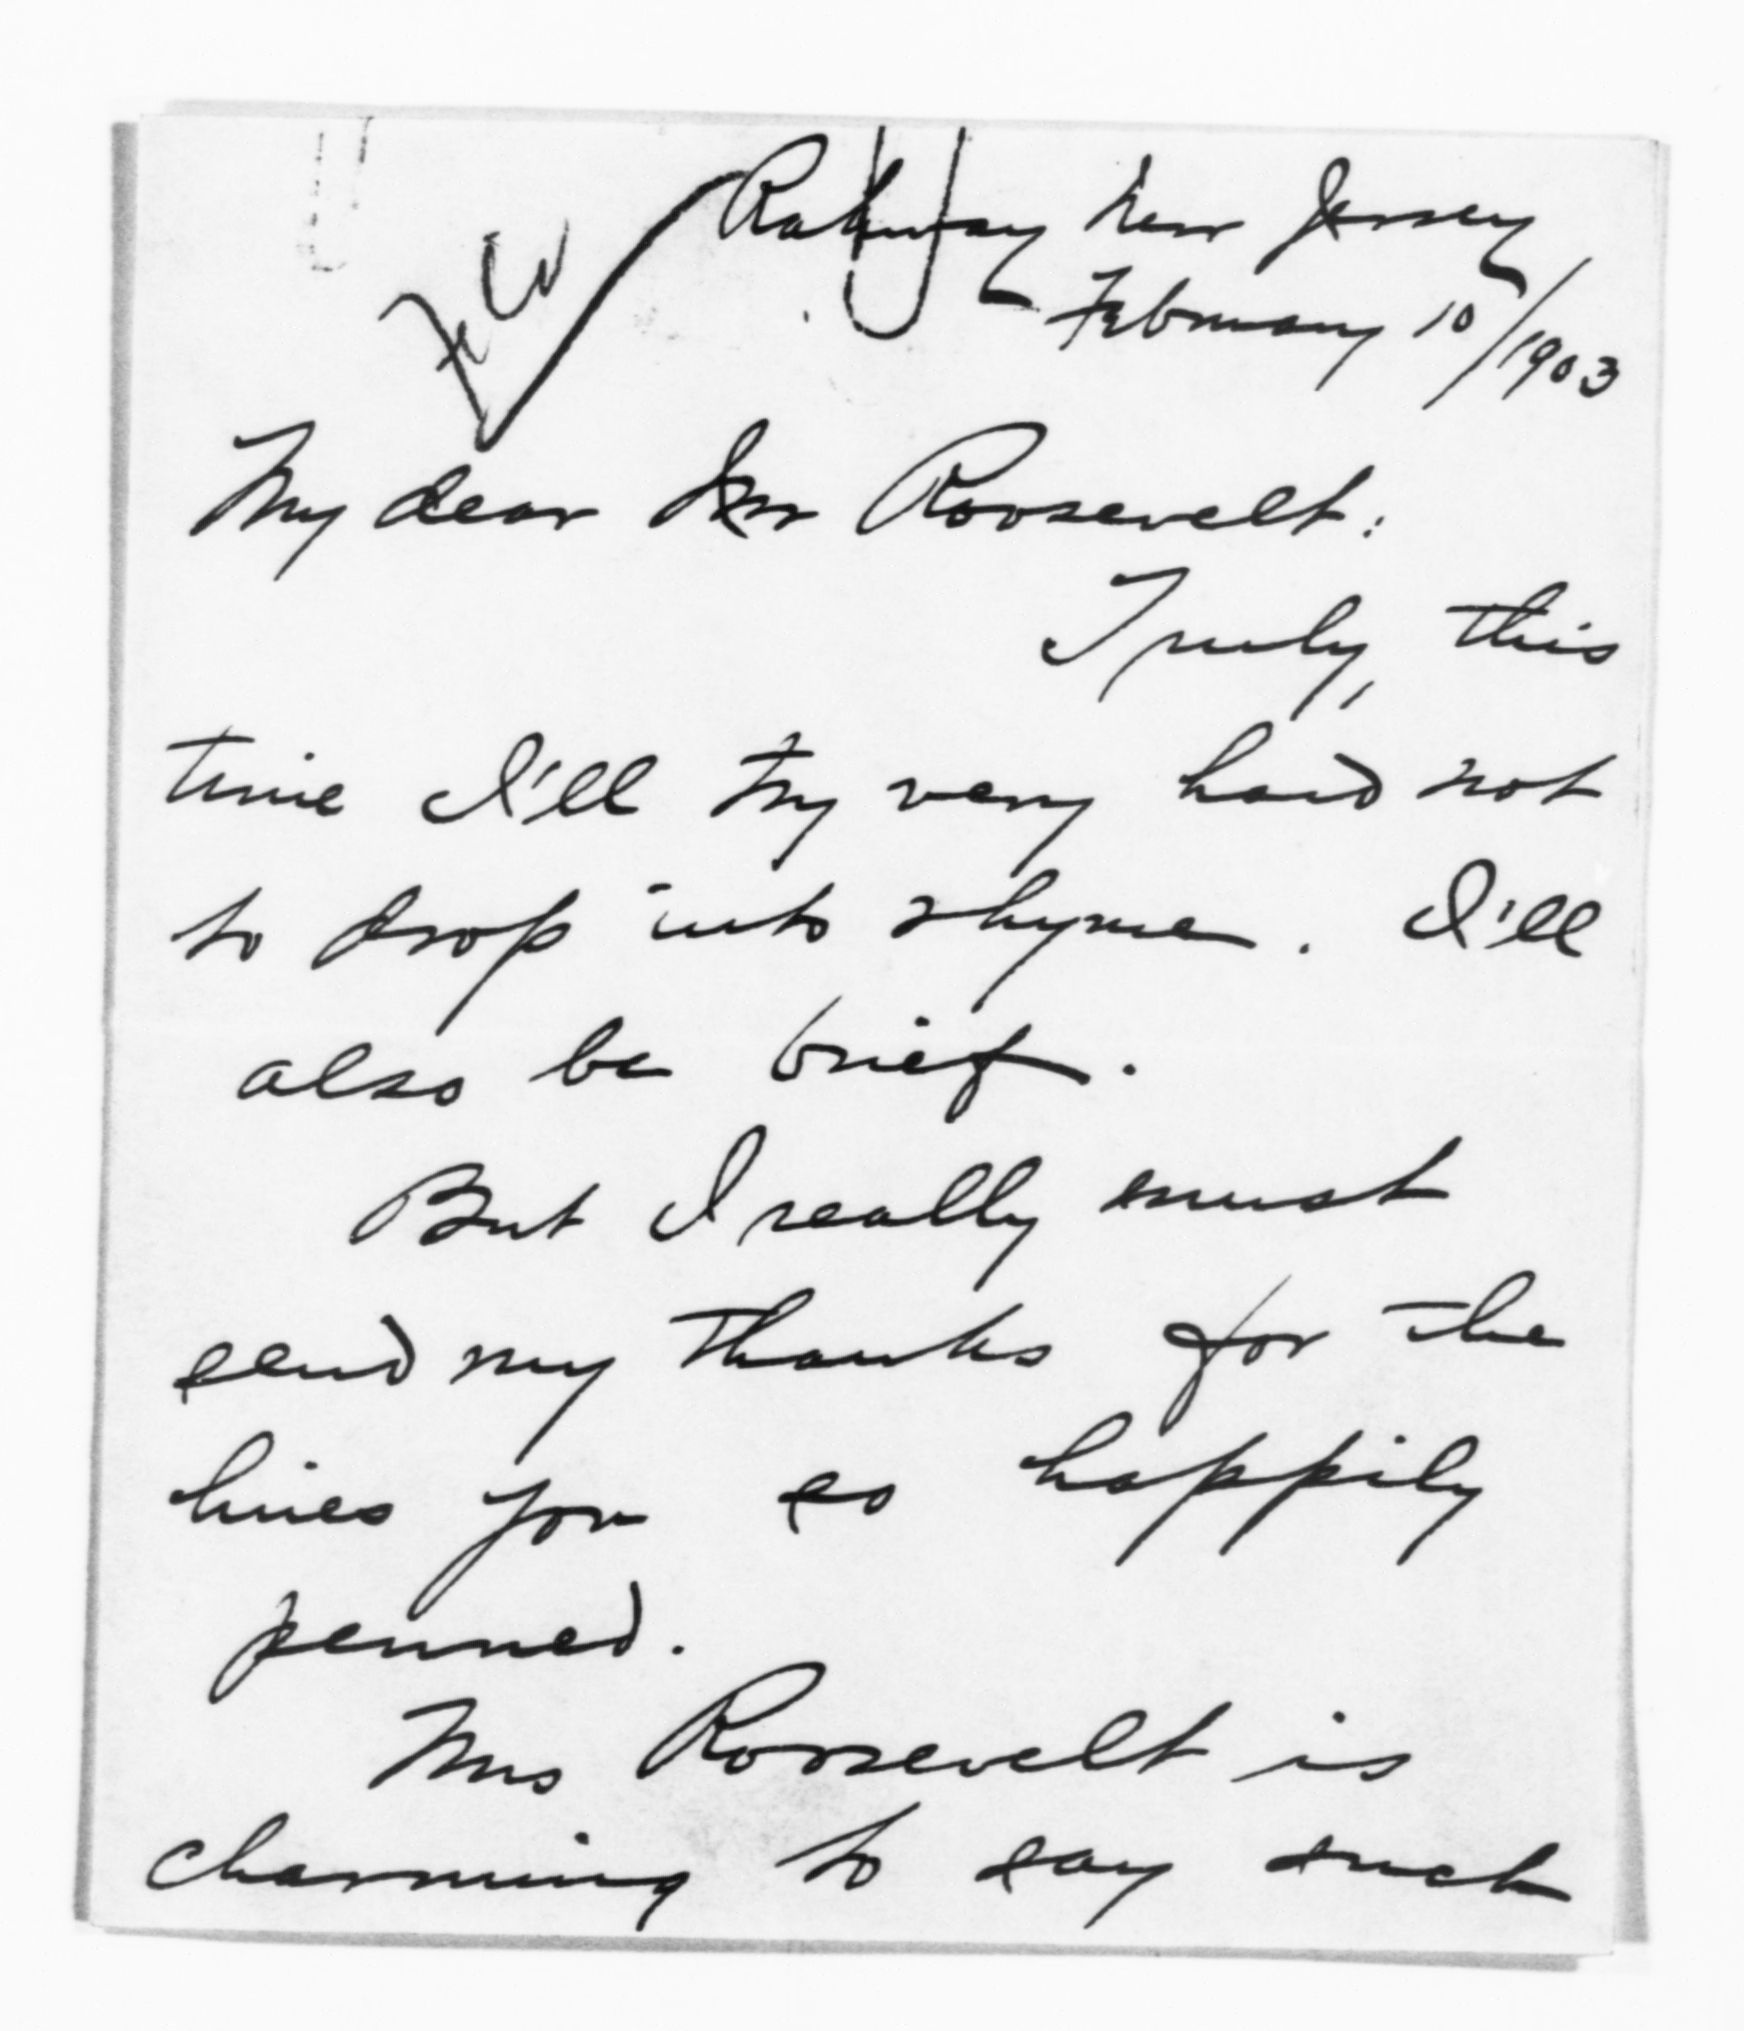 Rahway New Jersey
February 10/1903
My dear Mr Roosevelt:
Truly, this
time I'll try very hard not
to drop into rhyme. I'll
also be brief.
But I really must
send my thanks for the
lines you so happily
penned.
Mrs Roosevelt is
charming to say such